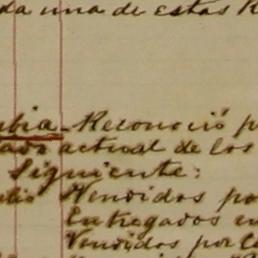 da una de estas R
bia - Reconoció p
actual de los
Siguiente:
Vendidos po
Entregados en
Vendidos por Co